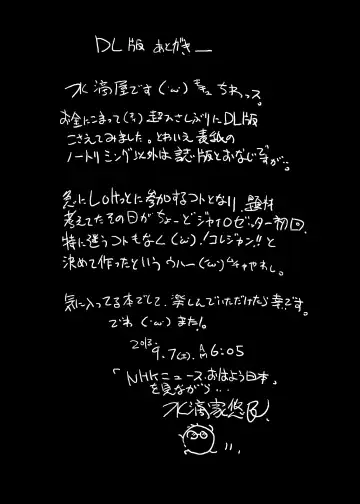 DL版 あとがき
水滴屋です(・ω) ちわっス。
お金にこまって(え) 超おひさしぶりにDL版
こさえてみました。とはいえ表紙の
ノートリミング以外は誌版とおなじですが…。
急に に参加するコトとなり、題材
考えてたその日がちょーどジャイロゼッター初回。
特に迷うコトもなく(・ω)!コレジャン!!と
決めて作ったという
気に入ってる本でして、楽しんでいただけたら幸です。
でわ(・ω・)また!。
2013. 9.7(土). AM6:05
「NHKニュースおはよう日本」
を見ながら…
水滴家